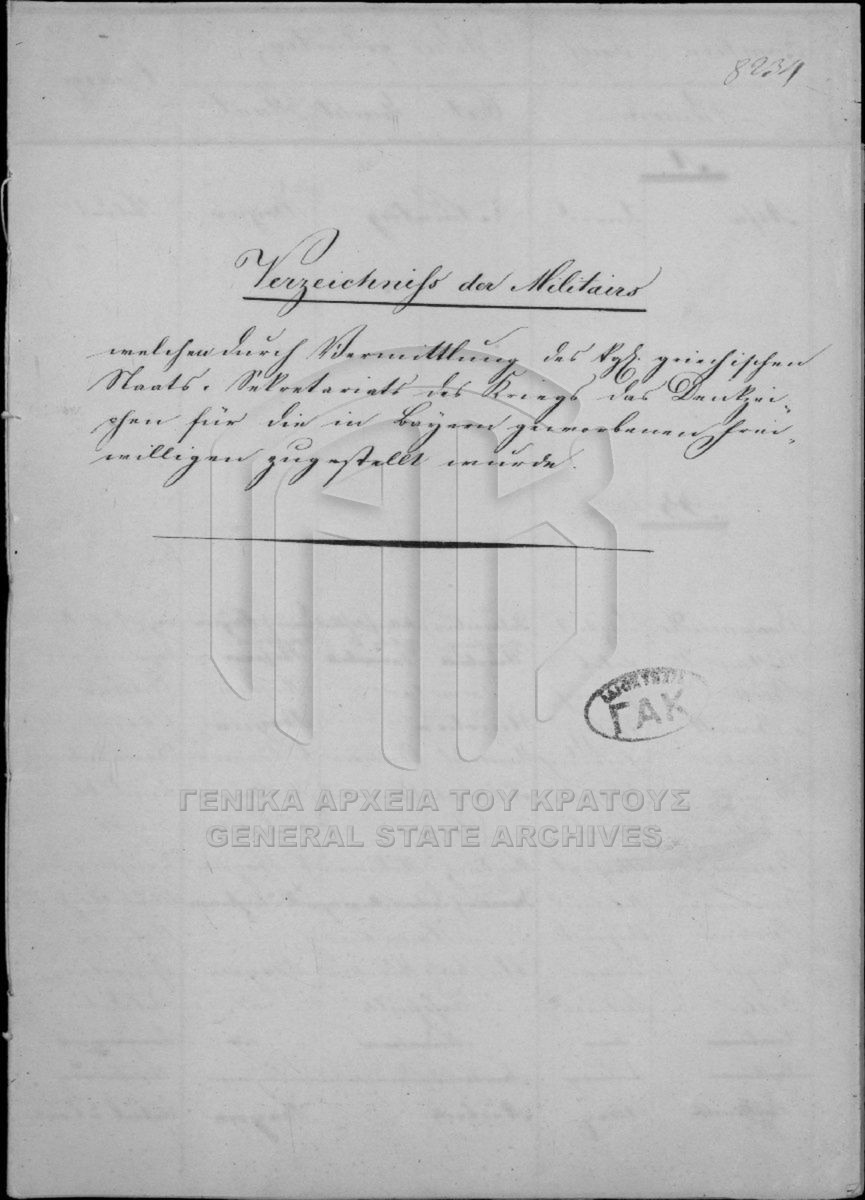 8234
Verzeichniss der Militairs
welchen durch Vermittlung des kgl. griechischen
Staats-Sekretariats des Kriegs das Denkzei-
chen für die in Bayern geworbenen Frei-
willigen zugestellt wurde.
ΓΑΚ
ΓΕΝΙΚΑ ΑΡΧΕΙΑ ΤΟΥ ΚΡΑΤΟΥΣ
GENERAL STATE ARCHIVES